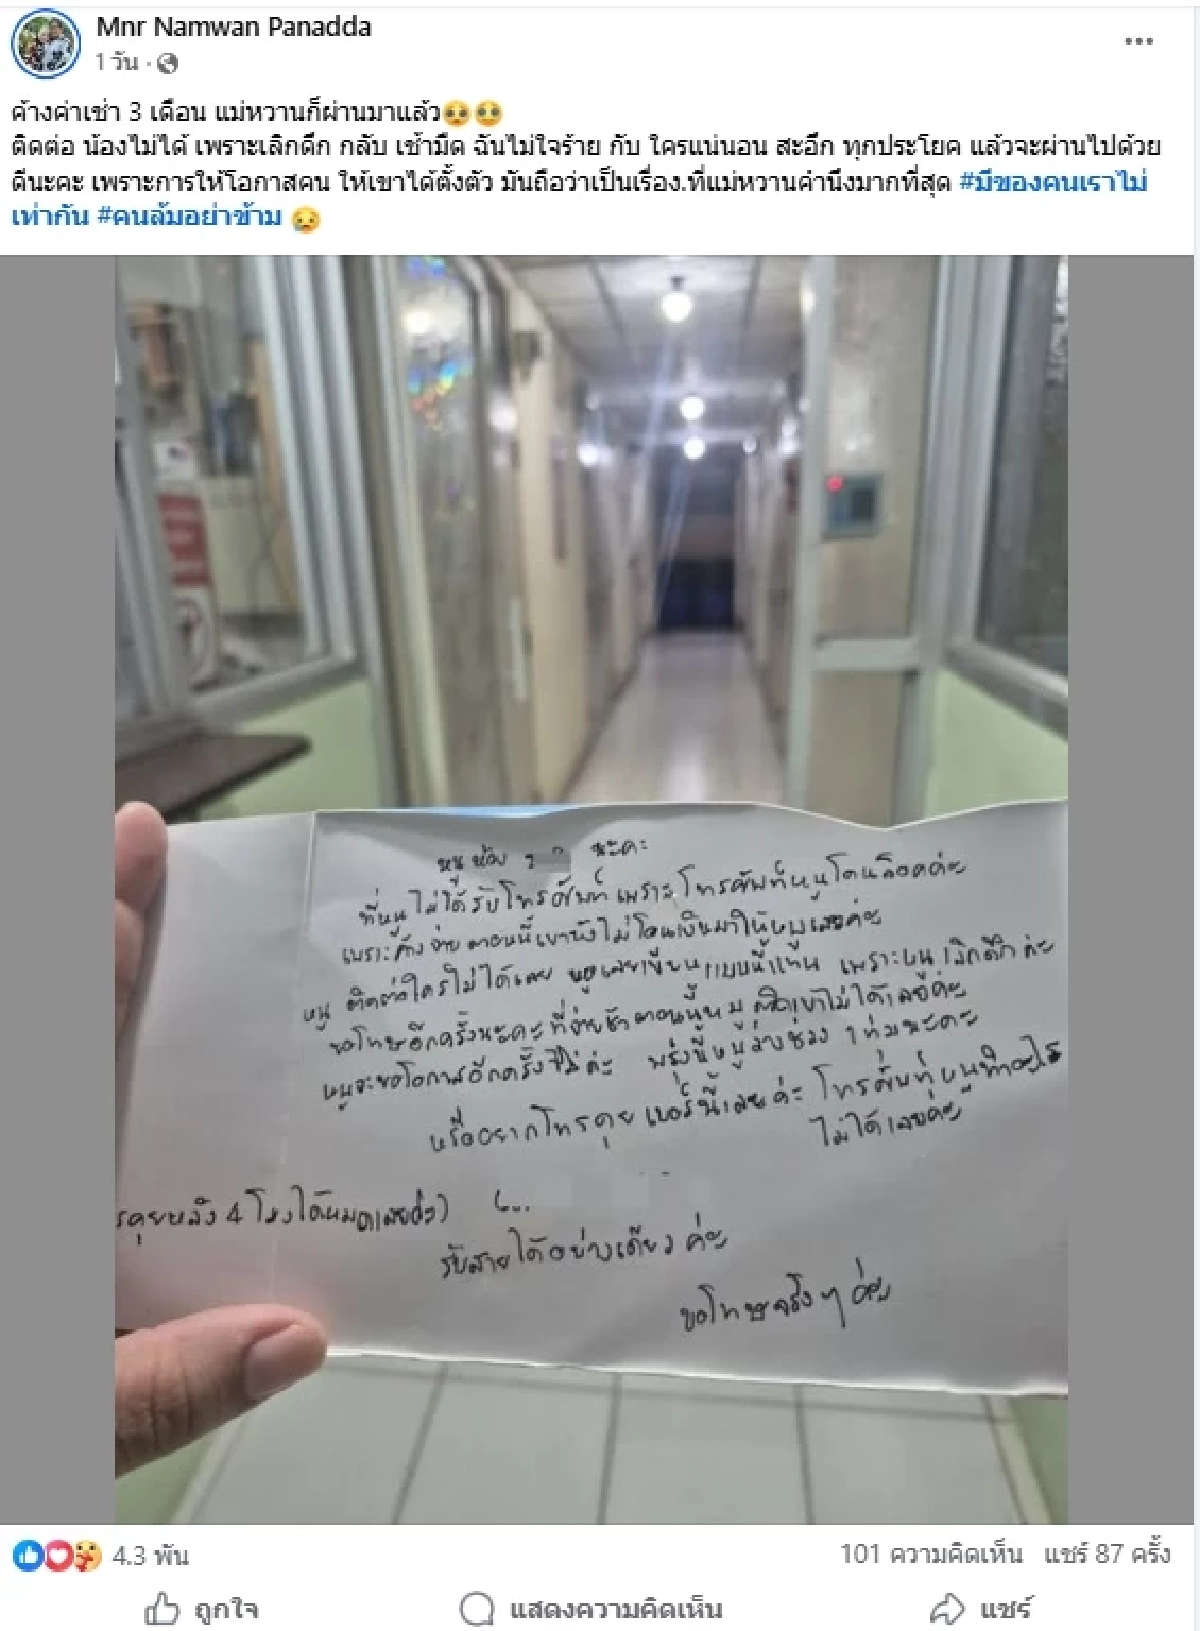 Mnr Namwan Panadda
1 วัน ·
ค้างค่าเช่า 3 เดือน แม่หวานก็ผ่านมาแล้ว🥺🥹
ติดต่อ น้องไม่ได้ เพราะเลิกดึก กลับ เช้ามืด ฉันไม่ใจร้าย กับ ใครแน่นอน สะอึก ทุกประโยค แล้วจะผ่านไปด้วย
ดีนะคะ เพราะการให้โอกาสคน ให้เขาได้ตั้งตัว มันถือว่าเป็นเรื่อง.ที่แม่หวานคำนึงมากที่สุด #มีของคนเราไม่
เท่ากัน #คนล้มอย่าข้าม 😥
หนู ห้อง นะคะ
ที่หนูไม่ได้รับโทรศัพท์ เพราะโทรศัพท์หนูโดนล็อคค่ะ
เพราะค้างจ่าย ตอนนี้เขายังไม่โอนเงินมาให้หนูเลยค่ะ
หนู ติดต่อใครไม่ได้เลย หนูเลยเขียนแบบนี้แทน เพราะหนูเลิกดึกค่ะ
ขอโทษอีกครั้งนะคะที่จ่ายช้า ตอนนี้หนู ติดเขาไม่ได้เลยค่ะ
หนูจะขอโอกาสอีกครั้งได้ไม่ค่ะ พรุ่งนี้หนูว่างช่วง 1 ทุ่มนะคะ
หรืออยากโทรคุย เบอร์นี้เลยค่ะ โทรศัพท์หนูทำอะไร
ไม่ได้เลยค่ะ
รคุยหลัง 4 โมงได้หมดเลยค่ะ)
รับสายได้อย่างเดียว ค่ะ
ขอโทษจริง ๆ ค่ะ
4.3 พัน
101 ความคิดเห็น แชร์ 87 ครั้ง
ถูกใจ
แสดงความคิดเห็น
แชร์